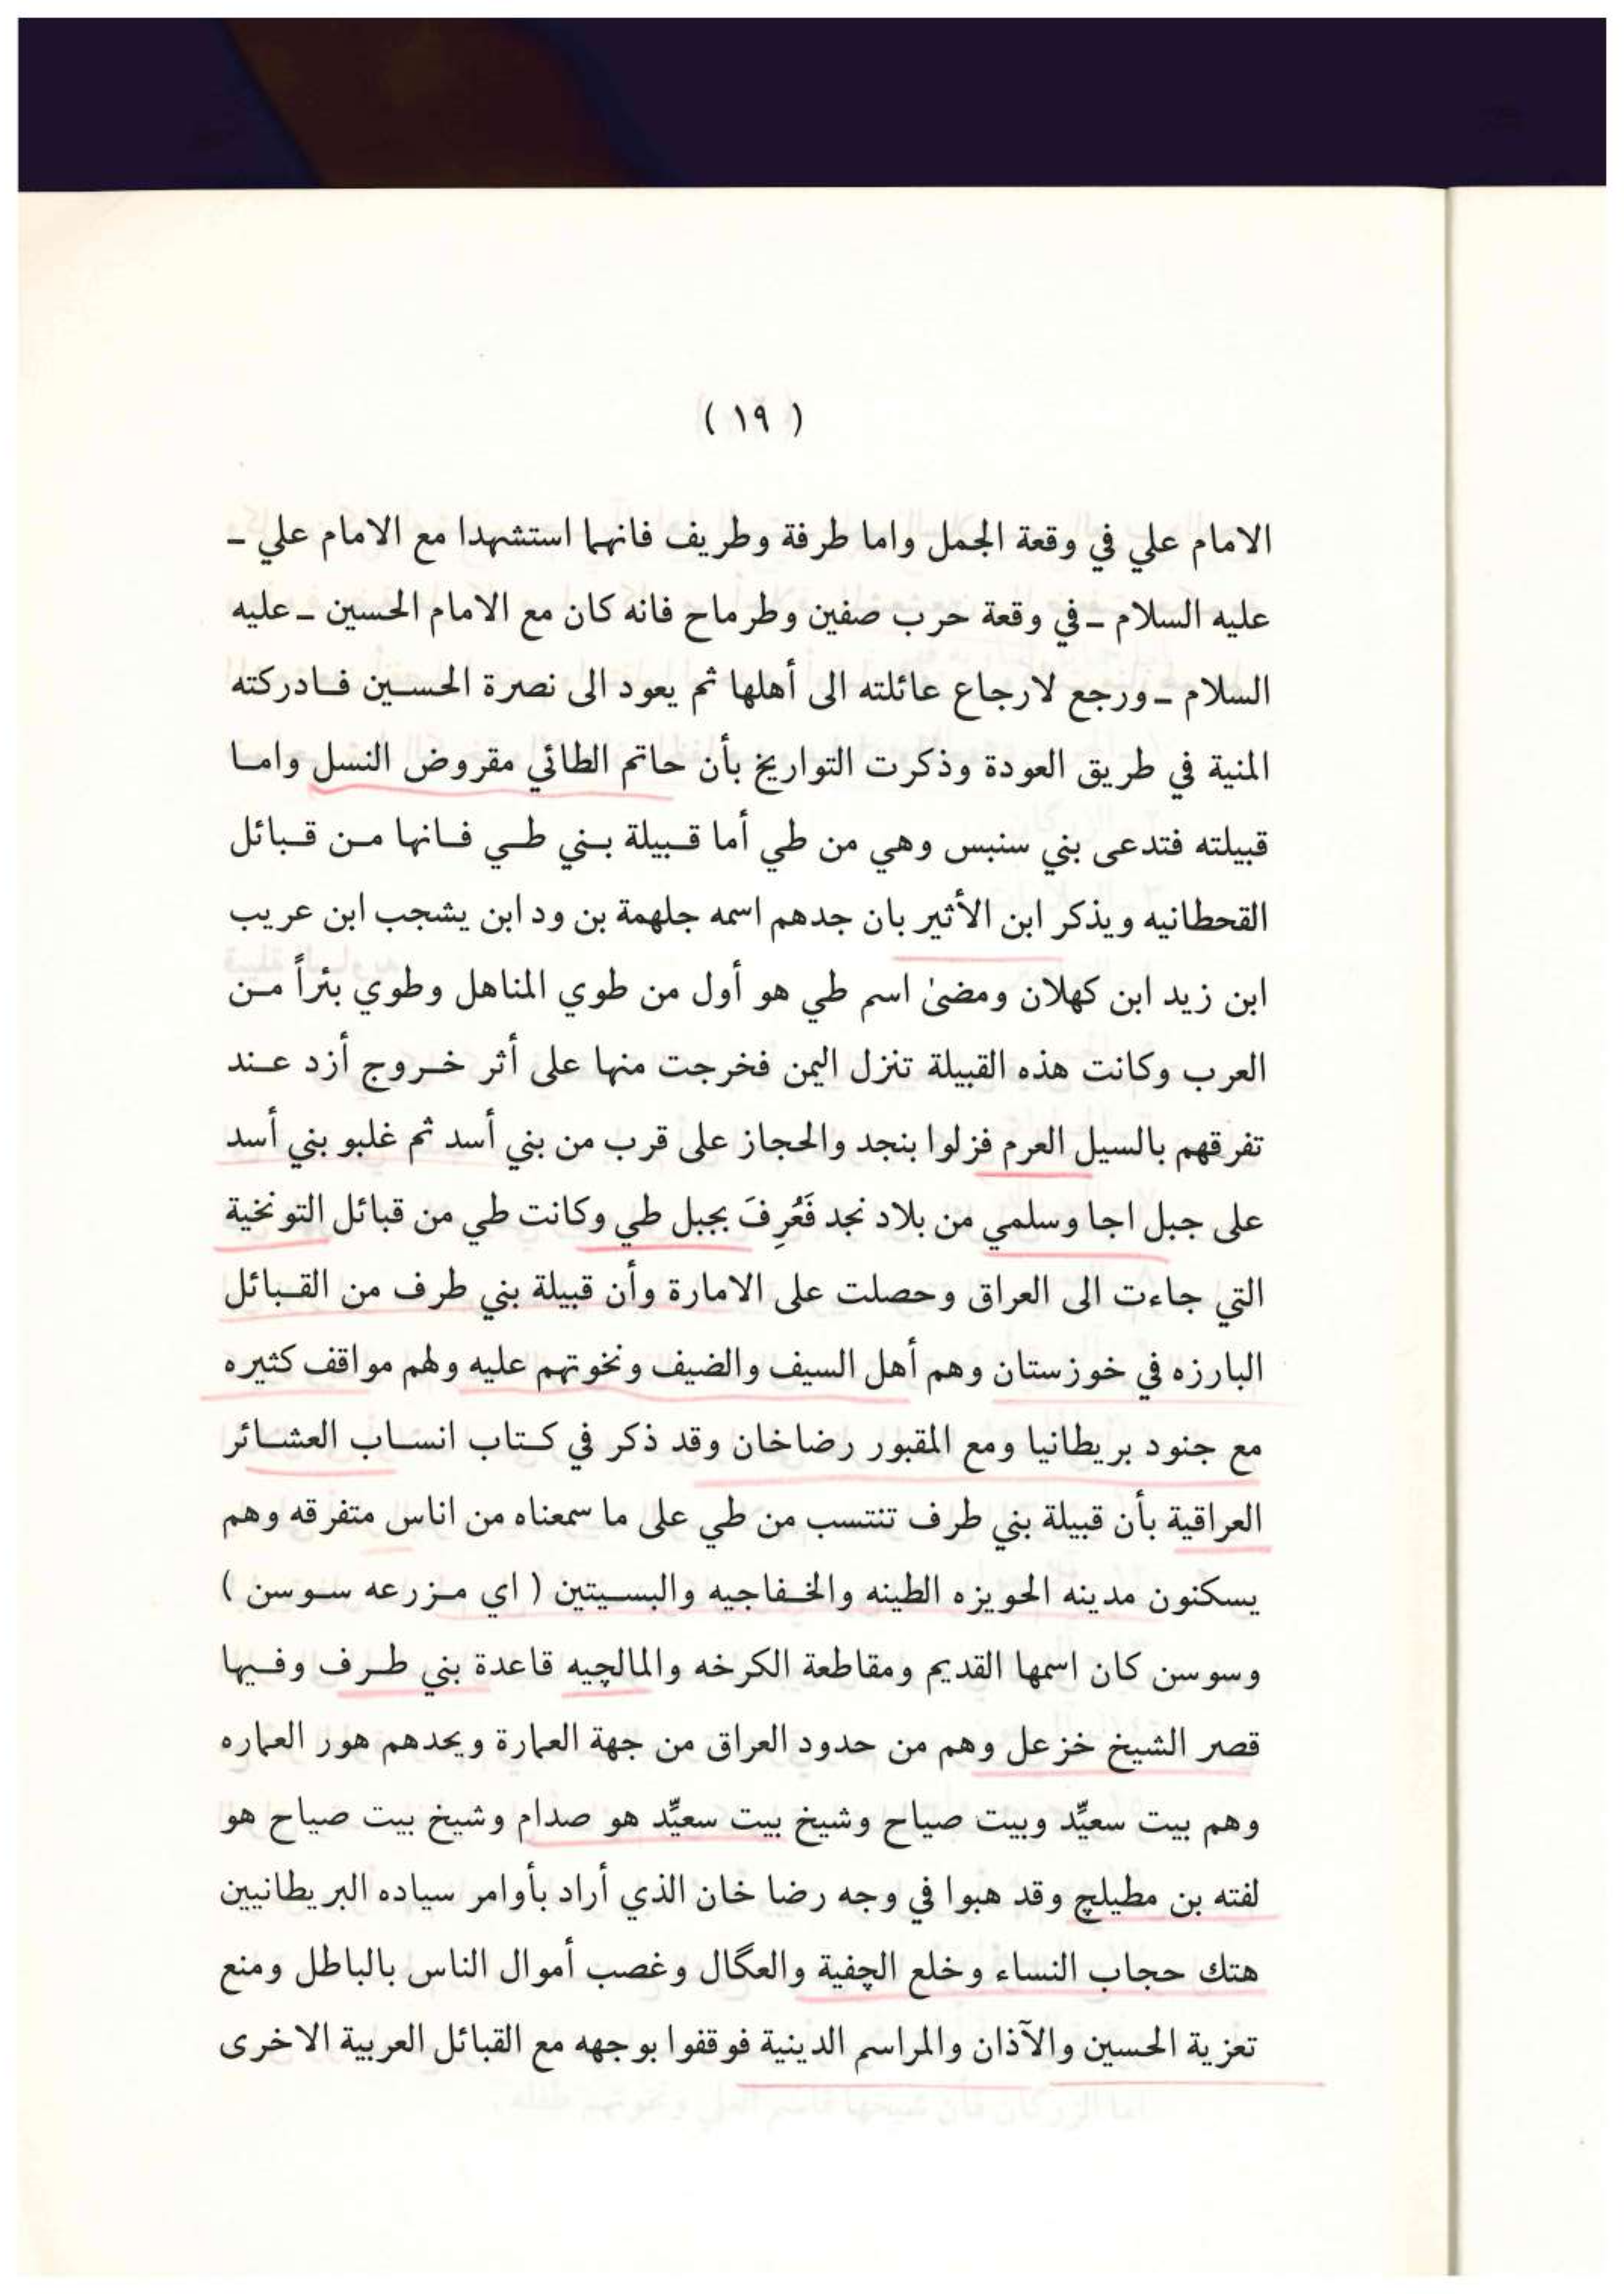 ( ١٩ )
الامام علي في وقعة الجمل واما طرفة وطريف فانهما استشهدا مع الامام علي ـ
عليه السلام ـ في وقعة حرب صفين وطرماح فانه كان مع الامام الحسين ـ عليه
السلام ـ ورجع لارجاع عائلته الى أهلها ثم يعود الى نصرة الحسين فادركته
المنية في طريق العودة وذكرت التواريخ بأن حاتم الطائي مقروض النسل واما
قبيلته فتدعى بني سنبس وهي من طي أما قبيلة بني طي فانها من قبائل
القحطانيه ويذكر ابن الأثير بان جدهم اسمه جلهمة بن ود ابن يشجب ابن عريب
ابن زيد ابن كهلان ومضىٰ اسم طي هو أول من طوي المناهل وطوي بئراً من
العرب وكانت هذه القبيلة تنزل اليمن فخرجت منها على أثر خروج أزد عند
تفرقهم بالسيل العرم فزلوا بنجد والحجاز على قرب من بني أسد ثم غلبو بني أسد
على جبل اجا وسلمي من بلاد نجد فَعُرِفَ بجبل طي وكانت طي من قبائل التونخية
التي جاءت الى العراق وحصلت على الامارة وأن قبيلة بني طرف من القبائل
البارزه في خوزستان وهم أهل السيف والضيف ونخوتهم عليه ولهم مواقف كثيره
مع جنود بريطانيا ومع المقبور رضاخان وقد ذكر في كتاب انساب العشائر
العراقية بأن قبيلة بني طرف تنتسب من طي على ما سمعناه من اناس متفرقه وهم
يسكنون مدينه الحويزه الطينه والخفاجيه والبسيتين ( اي مزرعه سوسن )
وسوسن كان اسمها القديم ومقاطعة الكرخه والمالچيه قاعدة بني طرف وفيها
قصر الشيخ خزعل وهم من حدود العراق من جهة العمارة ويحدهم هور العماره
وهم بيت سعيِّد وبيت صياح وشيخ بيت سعيِّد هو صدام وشيخ بيت صياح هو
لفته بن مطيلچ وقد هبوا في وجه رضا خان الذي أراد بأوامر سياده البريطانيين
هتك حجاب النساء وخلع الچفية والعگال وغصب أموال الناس بالباطل ومنع
تعزية الحسين والآذان والمراسم الدينية فوقفوا بوجهه مع القبائل العربية الاخرى